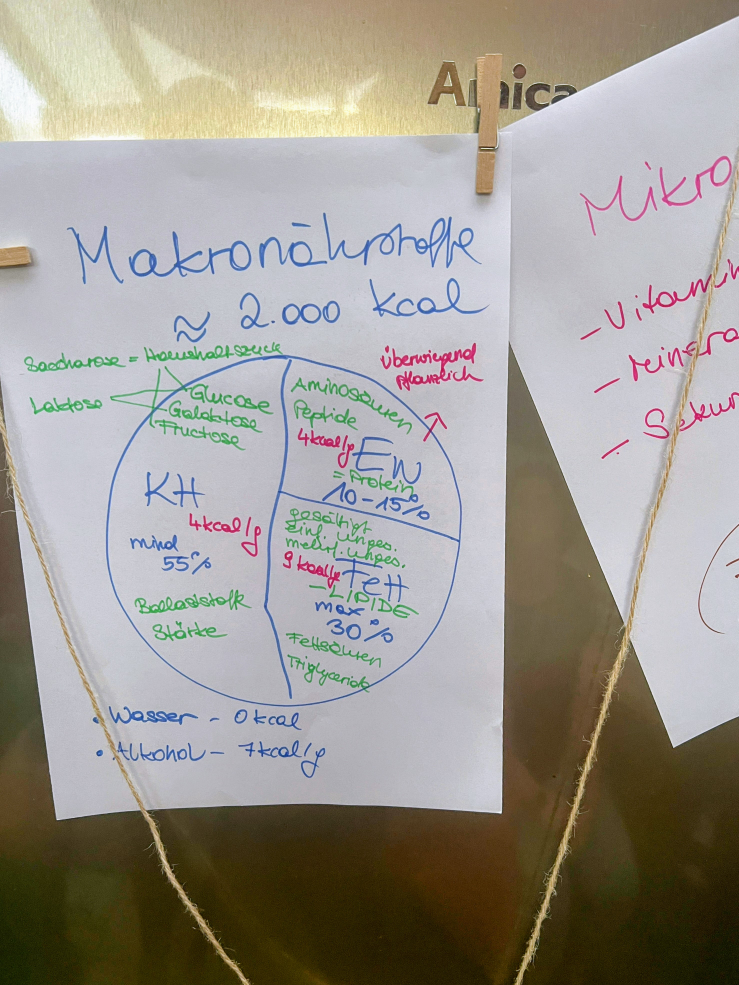 Amica
Makronährstoffe
≈ 2.000 kcal
Saccharose = Haushaltszuck
Laktose
Glucose
Galaktose
Fructose
KH
4kcal/g
mind
55%
Ballaststoffe
Stärke
überwiegend
pflanzlich
Aminosäuren
Peptide
4kcal/g
EW
= Protein
10-15%
gesättigt
einf. unges.
mehrf. unges.
9 kcal/g
Fett
- LIPIDE
max
30%
Fettsäuren
Triglyceride
• Wasser - 0 kcal
• Alkohol - 7kcal/g
Mikro
- Vitamin
- Minera
- Sekun